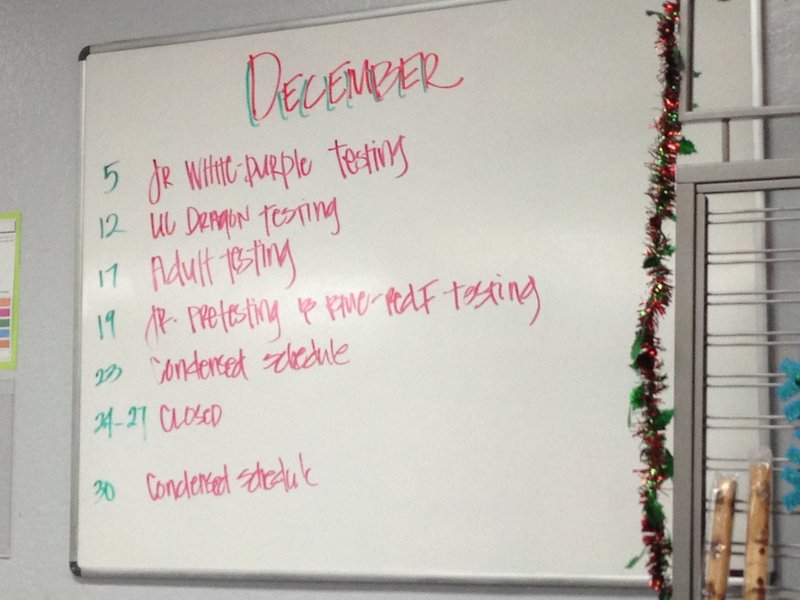 DECEMBER
5 JR WHITE-PURPLE TESTING
12 LIL DRAGON TESTING
17 ADULT TESTING
19 JR. PRETESTING & BLUE-RED/F TESTING
23 CONDENSED SCHEDULE
24-27 CLOSED
30 CONDENSED SCHEDULE